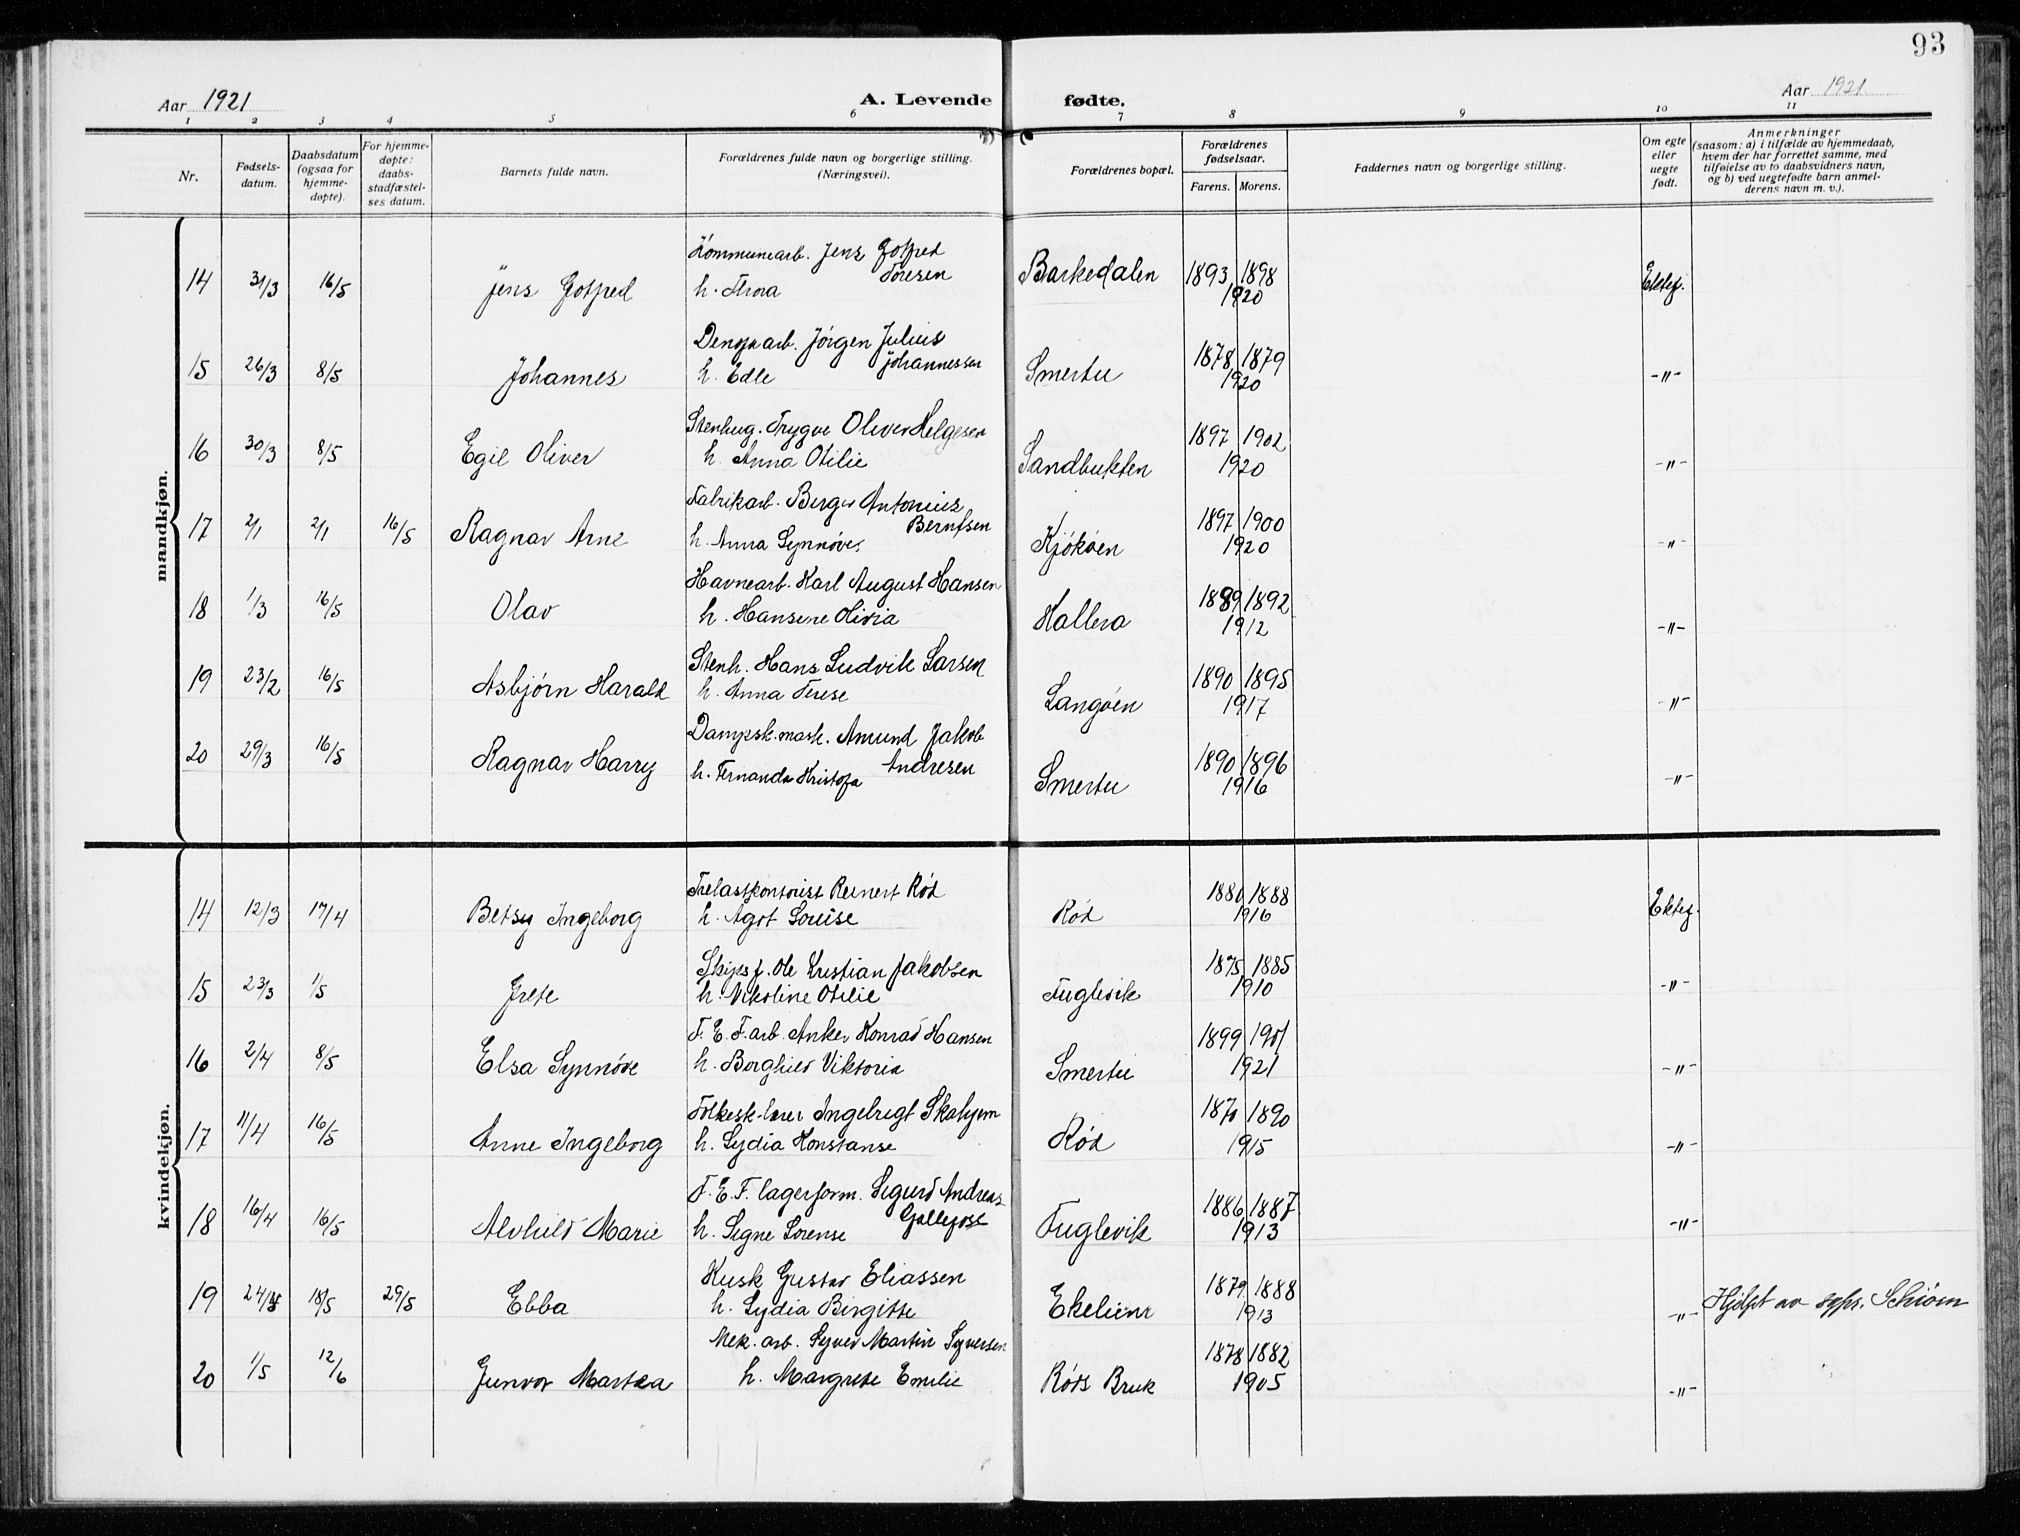 93
Aar 1921
A. Levende fødte.
Aar 1921
1 2 3 4 5 6 7 8 9 10 11
Nr.
Fødsels-
datum.
Daabsdatum
(ogsaa for
hjemme-
døpte).
For hjemme-
døpte:
daabs-
stadfæstel-
ses datum.
Barnets fulde navn.
Forældrenes fulde navn og borgerlige stilling.
(Næringsvei).
Forældrenes bopæl.
Forældrenes
fødselsaar.
Farens. Morens.
Faddernes navn og borgerlige stilling.
Om egte
eller
uegte
født.
Anmerkninger
(saasom: a) i tilfælde av hjemmedaab,
hvem der har forrettet samme, med
tilføielse av to daabsvidners navn,
og b) ved uegtefødte barn anmel-
derens navn m. v.).
mandkjøn.
Kommunearb. Jens Gotfred
Toresen
14 31/3 16/5 Jens Gotfred h. Thora Barkedalen 1893 1898 Ektef.
1920
Jörgen Julius
Johannessen
15 26/3 8/5 Johannes h. Edle Smertu 1878 1879 -"-
1920
Stenhug. Trygve Oliver Helgesen
16 30/3 8/5 Egil Oliver h. Anna Otilie Sandbukten 1897 1902 -"-
1920
Fabrikarb. Birger Antonius
Berntsen
17 2/1 2/1 16/5 Ragnar Arne h. Anna Synnöve. Kjököen 1897 1900 -"-
1920
Havnearb. Karl August Hansen
18 1/3 16/5 Olav h. Hansene Olivia Kallera 1889 1892 -"-
1912
Stenh. Hans Ludvik Larsen
19 23/2 16/5 Asbjörn Harald h. Anna Terese Langöen 1890 1895 -"-
1917
Dampsk.mask. Amund Jakob
Andresen
20 29/3 16/5 Ragnar Harry h. Fernanda Kristofa Smertu 1890 1896 -"-
1916
kvindekjøn.
Trelastkontorist Reinert Röd
14 12/3 17/4 Betsy Ingeborg h. Agot Louise Röd 1888 Ektef.
1916
Skipsf. Ole Kristian Jakobsen
15 23/3 1/5 Grete h. Nikoline Otilie Fuglevik 1875 1885 -"-
1910
F. E. F. arb. Anker Konrad Hansen
16 2/4 8/5 Elsa Synnöve h. Borghild Viktoria Smertu 1899 1901 -"-
1921
Folkesk.lærer Ingebrigt Skahjem
17 11/4 16/5 Anne Ingeborg h. Lydia Konstanse Röd 1870 1890 -"-
1915
F. E. F. lagerform. Sigurd Andreas
18 16/4 16/5 Alvhild Marie h. Signe Lorense Fuglevik 1886 1887 -"-
1913
Kusk Gustav Eliassen
19 18/5 29/5 Ebba h. Lydia Birgitte Ekeliene 1879 1888 -"- Hjdpt av sgpr. Schiörn
1913
Mek. arb. Syver Martin Syversen
20 1/5 12/6 Gunvor Martea h. Margrete Emilie Röds Bruk 1878 1882 -"-
1905